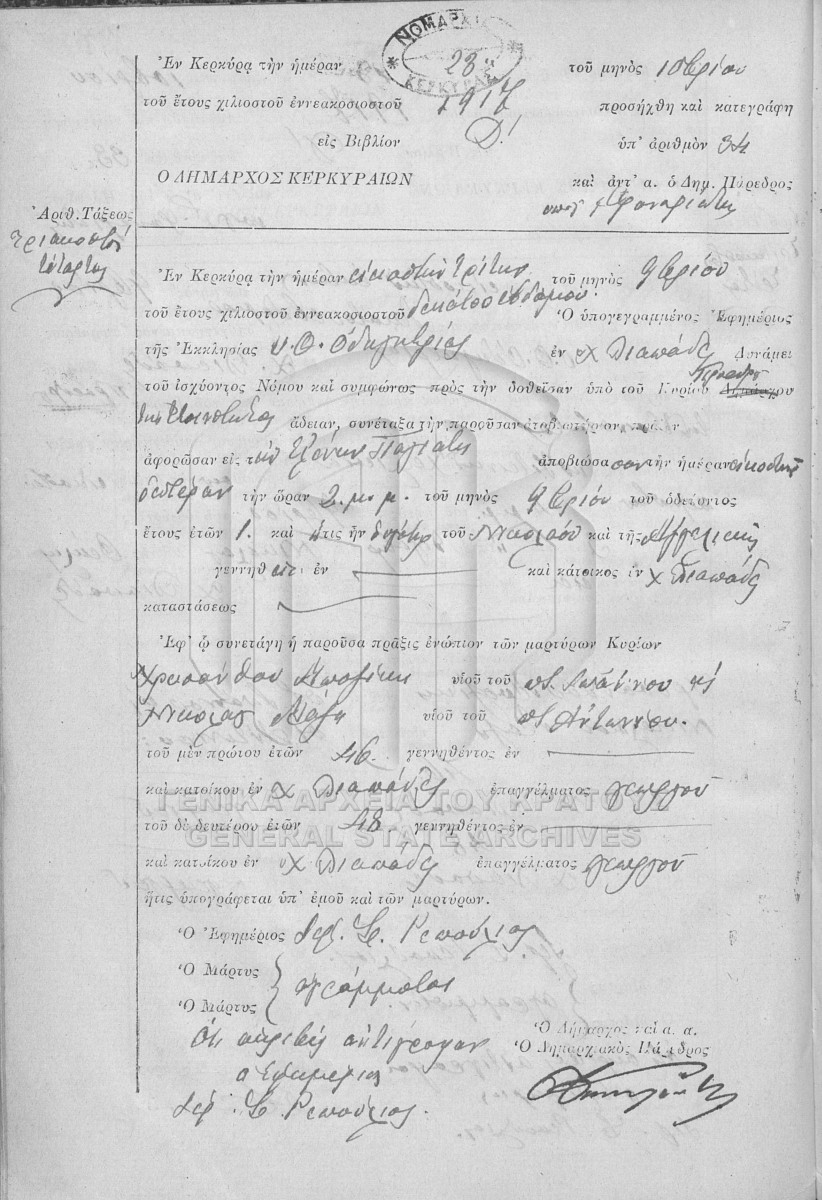 ΝΟΜΑΡΧΙΑ ΚΕΡΚΥΡΑΣ
Ἐν Κερκύρᾳ τὴν ἡμέραν 23ῃ τοῦ μηνὸς 10βρίου
τοῦ ἔτους χιλιοστοῦ ἐννεακοσιοστοῦ 1917 προσήχθη καὶ κατεγράφη
εἰς Βιβλίον Δ! ὑπ' ἀριθμὸν 34
Ο ΔΗΜΑΡΧΟΣ ΚΕΡΚΥΡΑΙΩΝ καὶ ἀντ' α. ὁ Δημ. Πάρεδρος
Ἀριθ. Τάξεως
τριακοστή
τέταρτος
Ἐν Κερκύρᾳ τὴν ἡμέραν εἰκοστὴν τρίτην τοῦ μηνὸς 9βρίου
τοῦ ἔτους χιλιοστοῦ ἐννεακοσιοστοῦ δεκάτου ἑβδόμου. Ὁ ὑπογεγραμμένος Ἐφημέριος
τῆς Ἐκκλησίας Υ. Θ. Ὁδηγητρίας ἐν χ Λιαπάδες Δυνάμει
τοῦ ἰσχύοντος Νόμου καὶ συμφώνως πρὸς τὴν δοθεῖσαν ὑπὸ τοῦ Κυρίου Δημάρχου Προέδρου
τῆς Κοινότητος ἄδειαν, συνέταξα τὴν παροῦσαν ἀποβιωτήριον πρᾶξιν
ἀφορῶσαν εἰς τὴν Ἑλένην ἀποβιώσασαν τὴν ἡμέραν εἰκοστὴν
δευτέραν τὴν ὥραν 2. μ. μ. τοῦ μηνὸς 9βρίου τοῦ ὁδεύοντος
ἔτους ἐτῶν 1. καὶ ἥτις ἦν θυγάτηρ τοῦ Νικολάου καὶ τῆς Ἀγγελικῆς
γεννηθεῖσα ἐν καὶ κάτοικος ἐν χ Λιαπάδες
καταστάσεως
Ἐφ' ᾧ συνετάγη ἡ παροῦσα πρᾶξις ἐνώπιον τῶν μαρτύρων Κυρίων
Χρυσάνθου υἱοῦ τοῦ π. Ἰωάννου κὶ
Νικολάου υἱοῦ τοῦ π. Ἀντωνίου.
τοῦ μὲν πρώτου ἐτῶν 46. γεννηθέντος ἐν
καὶ κατοίκου ἐν χ Λιαπάδες ἐπαγγέλματος γεωργοῦ
ΓΕΝΙΚΑ ΑΡΧΕΙΑ ΤΟΥ ΚΡΑΤΟΥΣ
τοῦ δὲ δευτέρου ἐτῶν 48. γεννηθέντος ἐν
GENERAL STATE ARCHIVES
καὶ κατοίκου ἐν χ Λιαπάδες ἐπαγγέλματος γεωργοῦ
ἥτις ὑπογράφεται ὑπ' ἐμοῦ καὶ τῶν μαρτύρων.
Ὁ Ἐφημέριος Ἱερ. Σ. Ρεπούλιος
Ὁ Μάρτυς
ἀγράμματοι
Ὁ Μάρτυς
Ὅτι ἀκριβὲς ἀντίγραφον
ὁ Ἐφημέριος
Ἱερ. Σ. Ρεπούλιος.
Ὁ Δήμαρχος καὶ α. α.
Ὁ Δημαρχιακὸς Πάρεδρος